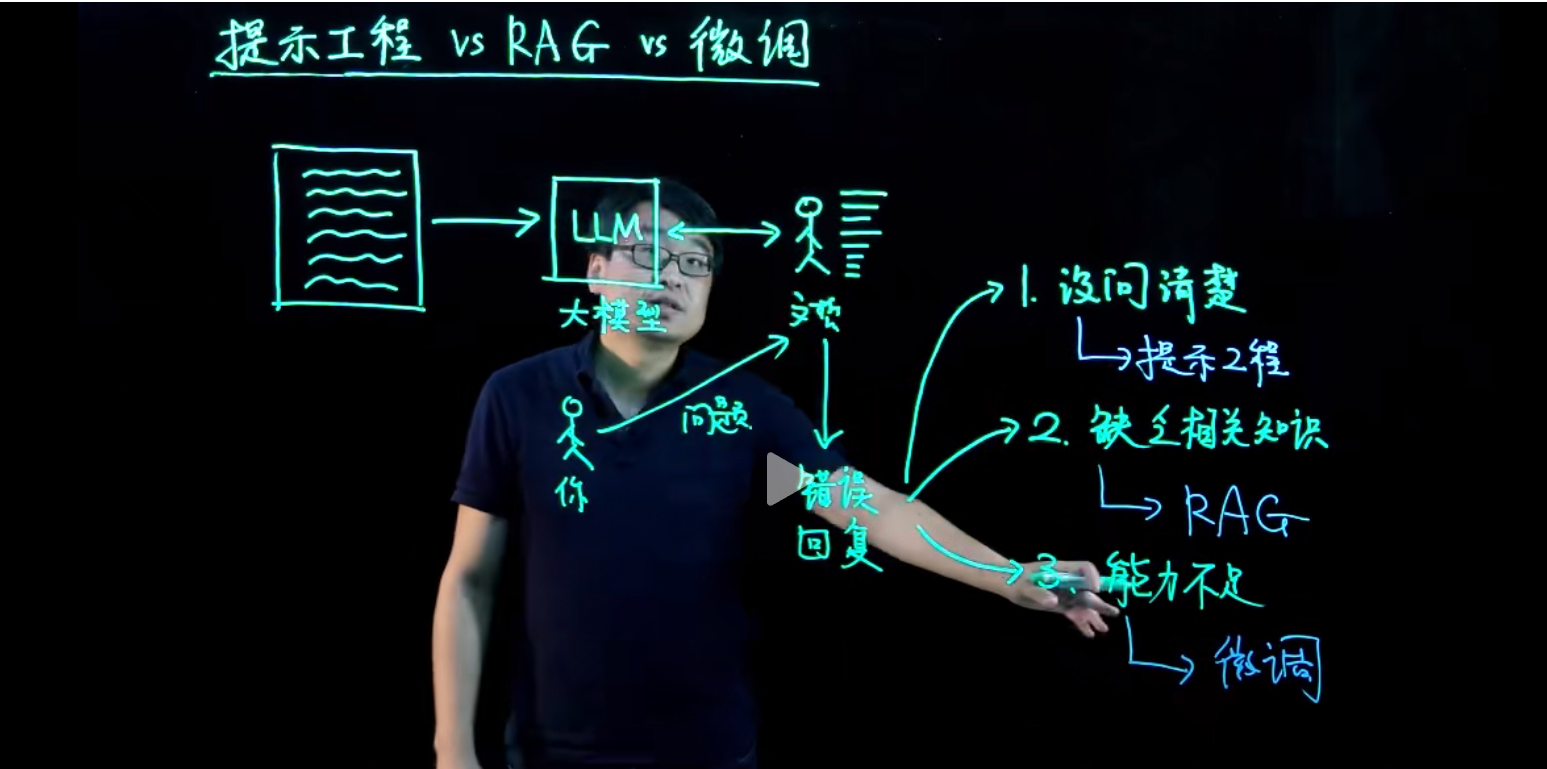 提示工程 vs RAG vs 微调
LLM
大模型
文哲
问题
你
错误
回复
1. 没问清楚
提示工程
2. 缺乏相关知识
RAG
3. 能力不足
微调